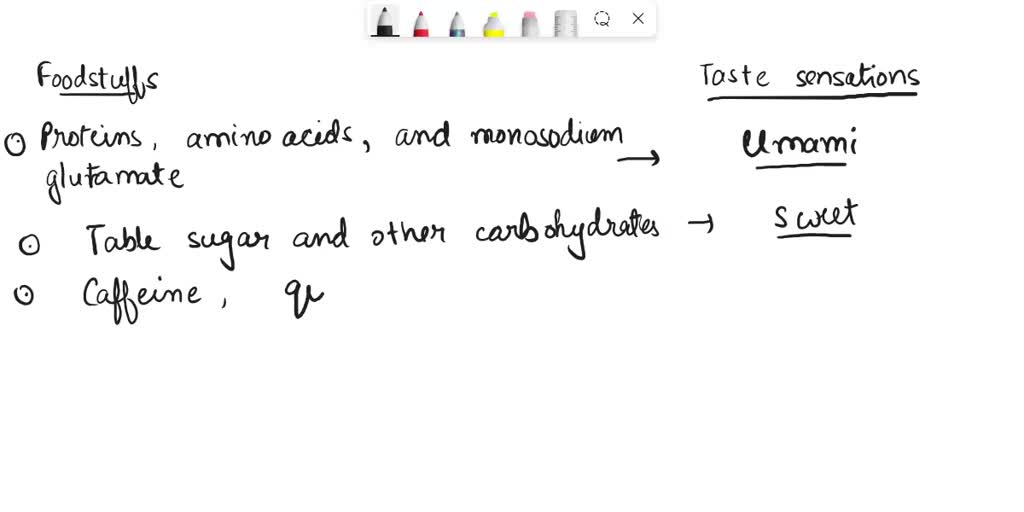 Foodstuffs Taste sensations
Proteins, amino acids, and monosodium → Umami
glutamate
Table sugar and other carbohydrates → Sweet
Caffeine, qu